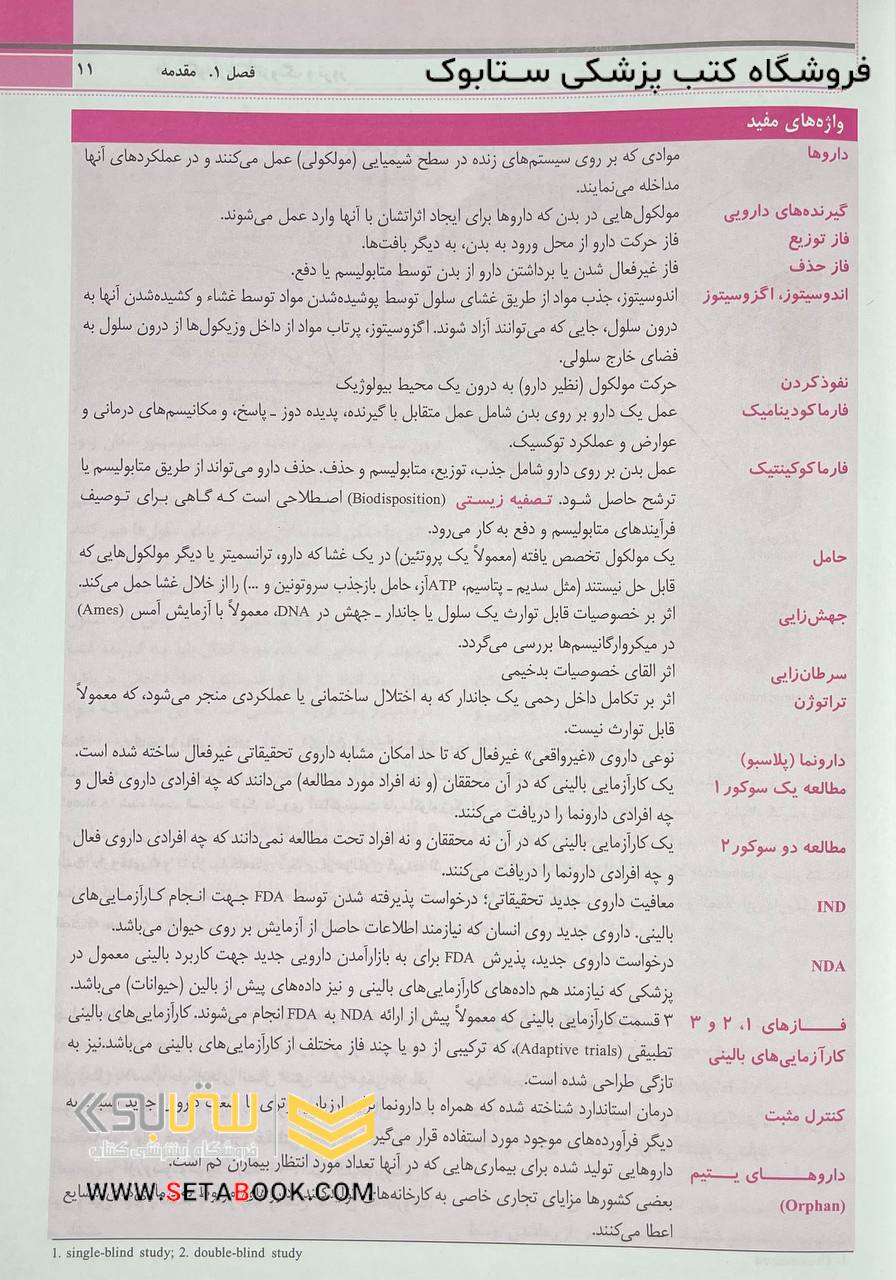 فروشگاه کتب پزشکی ستابوک
فصل ۱. مقدمه ۱۱
واژه‌های مفید
داروها موادی که بر روی سیستم‌های زنده در سطح شیمیایی (مولکولی) عمل می‌کنند و در عملکردهای آنها
مداخله می‌نمایند.
گیرنده‌های دارویی مولکول‌هایی در بدن که داروها برای ایجاد اثراتشان با آنها وارد عمل می‌شوند.
فاز توزیع فاز حرکت دارو از محل ورود به بدن، به دیگر بافت‌ها.
فاز حذف فاز غیرفعال شدن یا برداشتن دارو از بدن توسط متابولیسم یا دفع.
اندوسیتوز، اگزوسیتوز اندوسیتوز، جذب مواد از طریق غشای سلول توسط پوشیده‌شدن مواد توسط غشاء و کشیده‌شدن آنها به
درون سلول، جایی که می‌توانند آزاد شوند. اگزوسیتوز، پرتاب مواد از داخل وزیکول‌ها از درون سلول به
فضای خارج سلولی.
نفوذکردن حرکت مولکول (نظیر دارو) به درون یک محیط بیولوژیک
فارماکودینامیک عمل یک دارو بر روی بدن شامل عمل متقابل با گیرنده، پدیده دوز ـ پاسخ، و مکانیسم‌های درمانی و
عوارض و عملکرد توکسیک.
فارماکوکینتیک عمل بدن بر روی دارو شامل جذب، توزیع، متابولیسم و حذف. حذف دارو می‌تواند از طریق متابولیسم یا
ترشح حاصل شود. تصفیه زیستی (Biodisposition) اصطلاحی است که گاهی برای توصیف
فرآیندهای متابولیسم و دفع به کار می‌رود.
حامل یک مولکول تخصص یافته (معمولاً یک پروتئین) در یک غشا که دارو، ترانسمیتر یا دیگر مولکول‌هایی که
قابل حل نیستند (مثل سدیم ـ پتاسیم، ATPآز، حامل بازجذب سروتونین و ...) را از خلال غشا حمل می‌کند.
جهش‌زایی اثر بر خصوصیات قابل توارث یک سلول یا جاندار ـ جهش در DNA، معمولاً با آزمایش آمس (Ames)
در میکروارگانیسم‌ها بررسی می‌گردد.
سرطان‌زایی اثر القای خصوصیات بدخیمی
تراتوژن اثر بر تکامل داخل رحمی یک جاندار که به اختلال ساختمانی یا عملکردی منجر می‌شود، که معمولاً
قابل توارث نیست.
دارونما (پلاسبو) نوعی داروی «غیرواقعی» غیرفعال که تا حد امکان مشابه داروی تحقیقاتی غیرفعال ساخته شده است.
مطالعه یک سوکور۱ یک کارآزمایی بالینی که در آن محققان (و نه افراد مورد مطالعه) می‌دانند که چه افرادی داروی فعال و
چه افرادی دارونما را دریافت می‌کنند.
مطالعه دو سوکور۲ یک کارآزمایی بالینی که در آن نه محققان و نه افراد تحت مطالعه نمی‌دانند که چه افرادی داروی فعال
و چه افرادی دارونما را دریافت می‌کنند.
IND معافیت داروی جدید تحقیقاتی؛ درخواست پذیرفته شدن توسط FDA جهت انجام کارآزمایی‌های
بالینی. داروی جدید روی انسان که نیازمند اطلاعات حاصل از آزمایش بر روی حیوان می‌باشد.
NDA درخواست داروی جدید، پذیرش FDA برای به بازارآمدن دارویی جدید جهت کاربرد بالینی معمول در
پزشکی که نیازمند هم داده‌های کارآزمایی‌های بالینی و نیز داده‌های پیش از بالین (حیوانات) می‌باشد.
فازهای ۱، ۲ و ۳ ۳ قسمت کارآزمایی بالینی که معمولاً پیش از ارائه NDA به FDA انجام می‌شوند. کارآزمایی‌های بالینی
کارآزمایی‌های بالینی تطبیقی (Adaptive trials)، که ترکیبی از دو یا چند فاز مختلف از کارآزمایی‌های بالینی می‌باشد.نیز به
تازگی طراحی شده است.
کنترل مثبت درمان استاندارد شناخته شده که همراه با دارونما جدید به
دیگر فرآورده‌های موجود مورد استفاده قرار
داروهای یتیم داروهایی تولید شده برای بیماری‌هایی که در آنها تعداد مورد انتظار بیماران کم است.
(Orphan) بعضی کشورها مزایای تجاری خاصی به کارخانه‌های
اعطا می‌کنند.
ستابوک
فروشگاه اینترنتی کتاب
WWW.SETABOOK.COM
1. single-blind study; 2. double-blind study